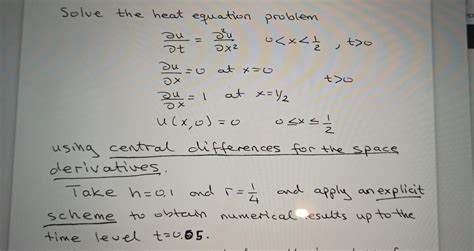 Solve the heat equation problem
∂u/∂t = ∂²u/∂x² 0<x<1/2 , t>0
∂u/∂x = 0 at x=0
t>0
∂u/∂x = 1 at x=1/2
u(x,0) = 0 0≤x≤1/2
using central differences for the space
derivatives.
Take h=0,1 and r=1/4 and apply an explicit
scheme to obtain numerical results up to the
time level t=0.05.